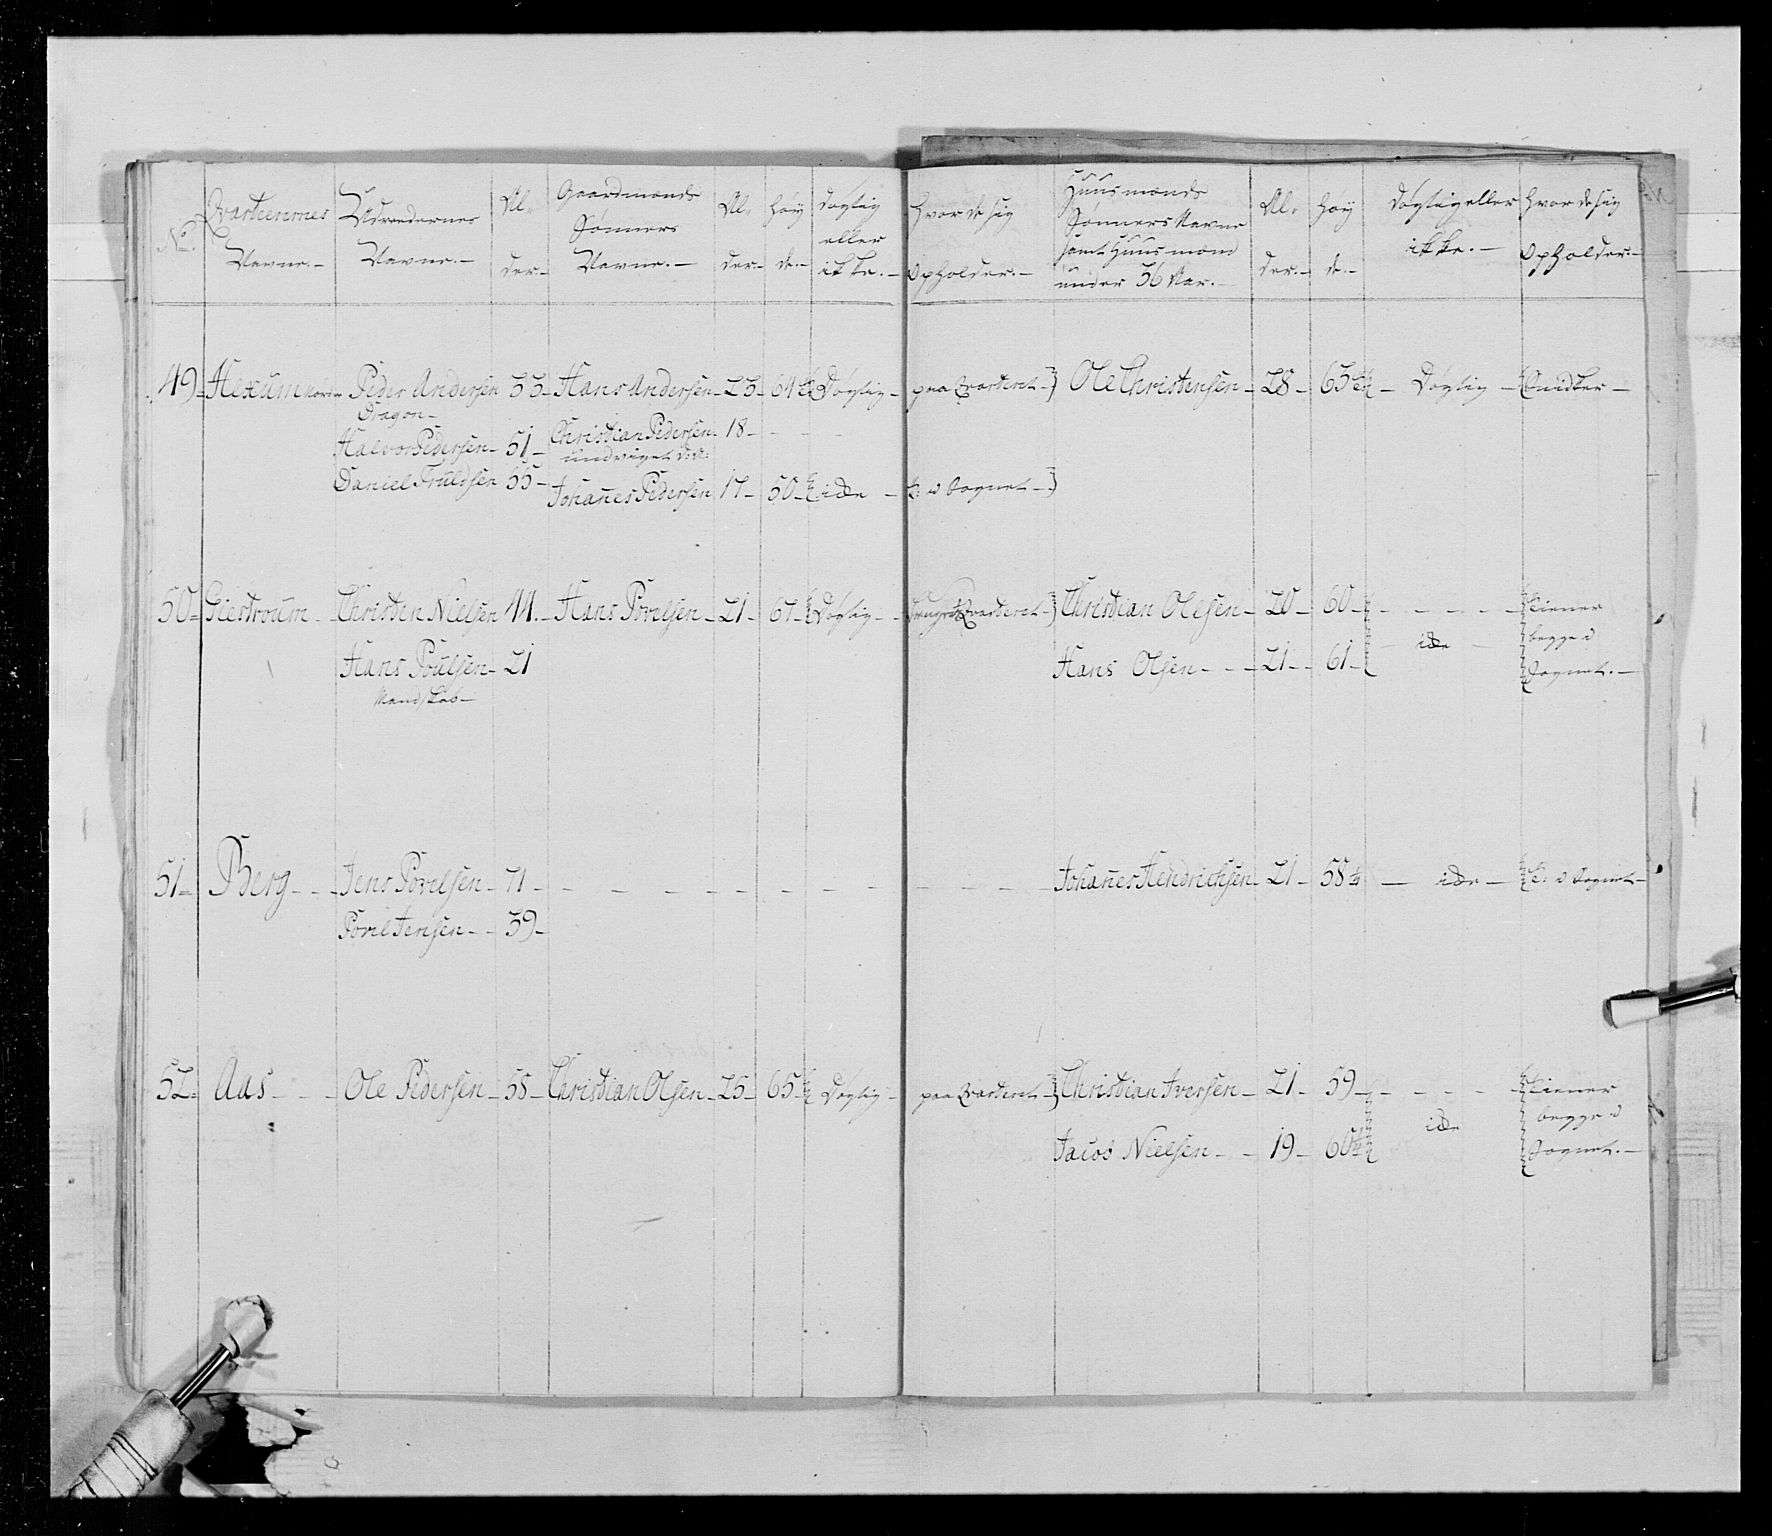 No.
Qvarterernes
Navne.-
Udreedernes
Navne.-
Al-
der-
Gaardmænds
Sønners
Navne.-
Al-
der-
høy
de-
døgtig
eller
ikke.-
hvor de sig
opholder.-
Huusmænds
Sønners Navne
samt Huusmænd
under 36 Aar.-
Al-
der.-
høy
de-
døgtig eller
ikke.-
hvor de sig
opholder.-
49- Hexum Peder Andersen 33- Hans Andersen- 23- 64 Døgtig- paa Qvarteret- Ole Christensen- 28- 63 Døgtig- Snidker-
Dragon-
Halvor Pedersen- 51- Christian Pedersen 18-
undviget
Daniel Truldsen 55- Johanes Pedersen 17- 50- icke- i Sognet-
50- Giestroum- Christen Nielsen 44.- Hans Povelsen- 21- 67- Døgtig- Qvarteret- Christian Olesen- 20- 60- tiener
Hans Poulsen- 21 Hans Olsen- 21- 61- icke begge i
Mandskab- Sognet.-
51- Berg- Jens Povelsen- 71- Johanes Hendrichsen- 21- 58 icke- i Sognet-
Povel Jensen- 39-
52- Aas- Ole Pedersen- 58- Christian Olsen- 25- 65- Døgtig- paa Qvarteret- Christian Iversen- 21- 59- tiener
icke begge i
Jacob Nielsen- 19- 60 Sognet.-